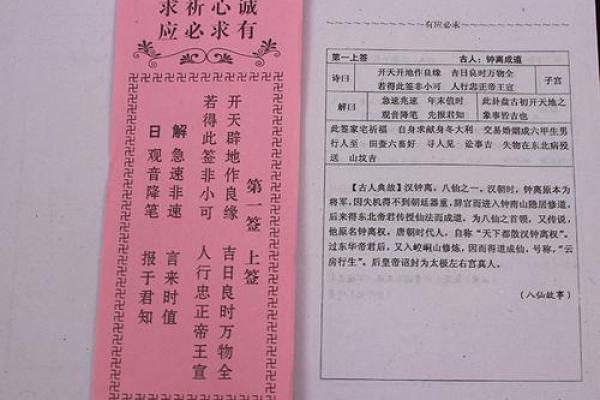 诚心祈求
有求必应
第一签 上签
开天辟地作良缘 吉日良时万物全
若得此签非小可 人行忠正帝王宣
解 急速非速 言来时值
日 观音降笔 报于君知
有应必求
第一上签 古人：钟离成道
诗曰 开天开地作良缘 吉日良时万物全 子宫
若得此签非小可 人行忠正帝王宣
解曰 急速兆速 年末值时 此卦盘古初开天地之
观音降笔 先报君知 象事皆吉也
此签家宅祈福 自身求献身冬大利 交易婚姻成六甲生男
行人至 田查六畜好 寻人见 讼事吉 失物在东北病殁
送 山坟吉
【古人典故】汉钟离，八仙之一，汉朝时，钟离原本为
将军，因失机得不到朝廷器重，辞官而进入钟南山隐居修道，
后来得东北帝君传授仙法而成道，为八仙之首领，又传说，
他原名钟离权，唐朝时代人，自称“天下都散汉钟离权”。
过东华帝君后，又入崆峒山修炼，因而得道成仙，号称，“云
房行生”，后皇帝诏封为太极左右宫真人。
（八仙故事）